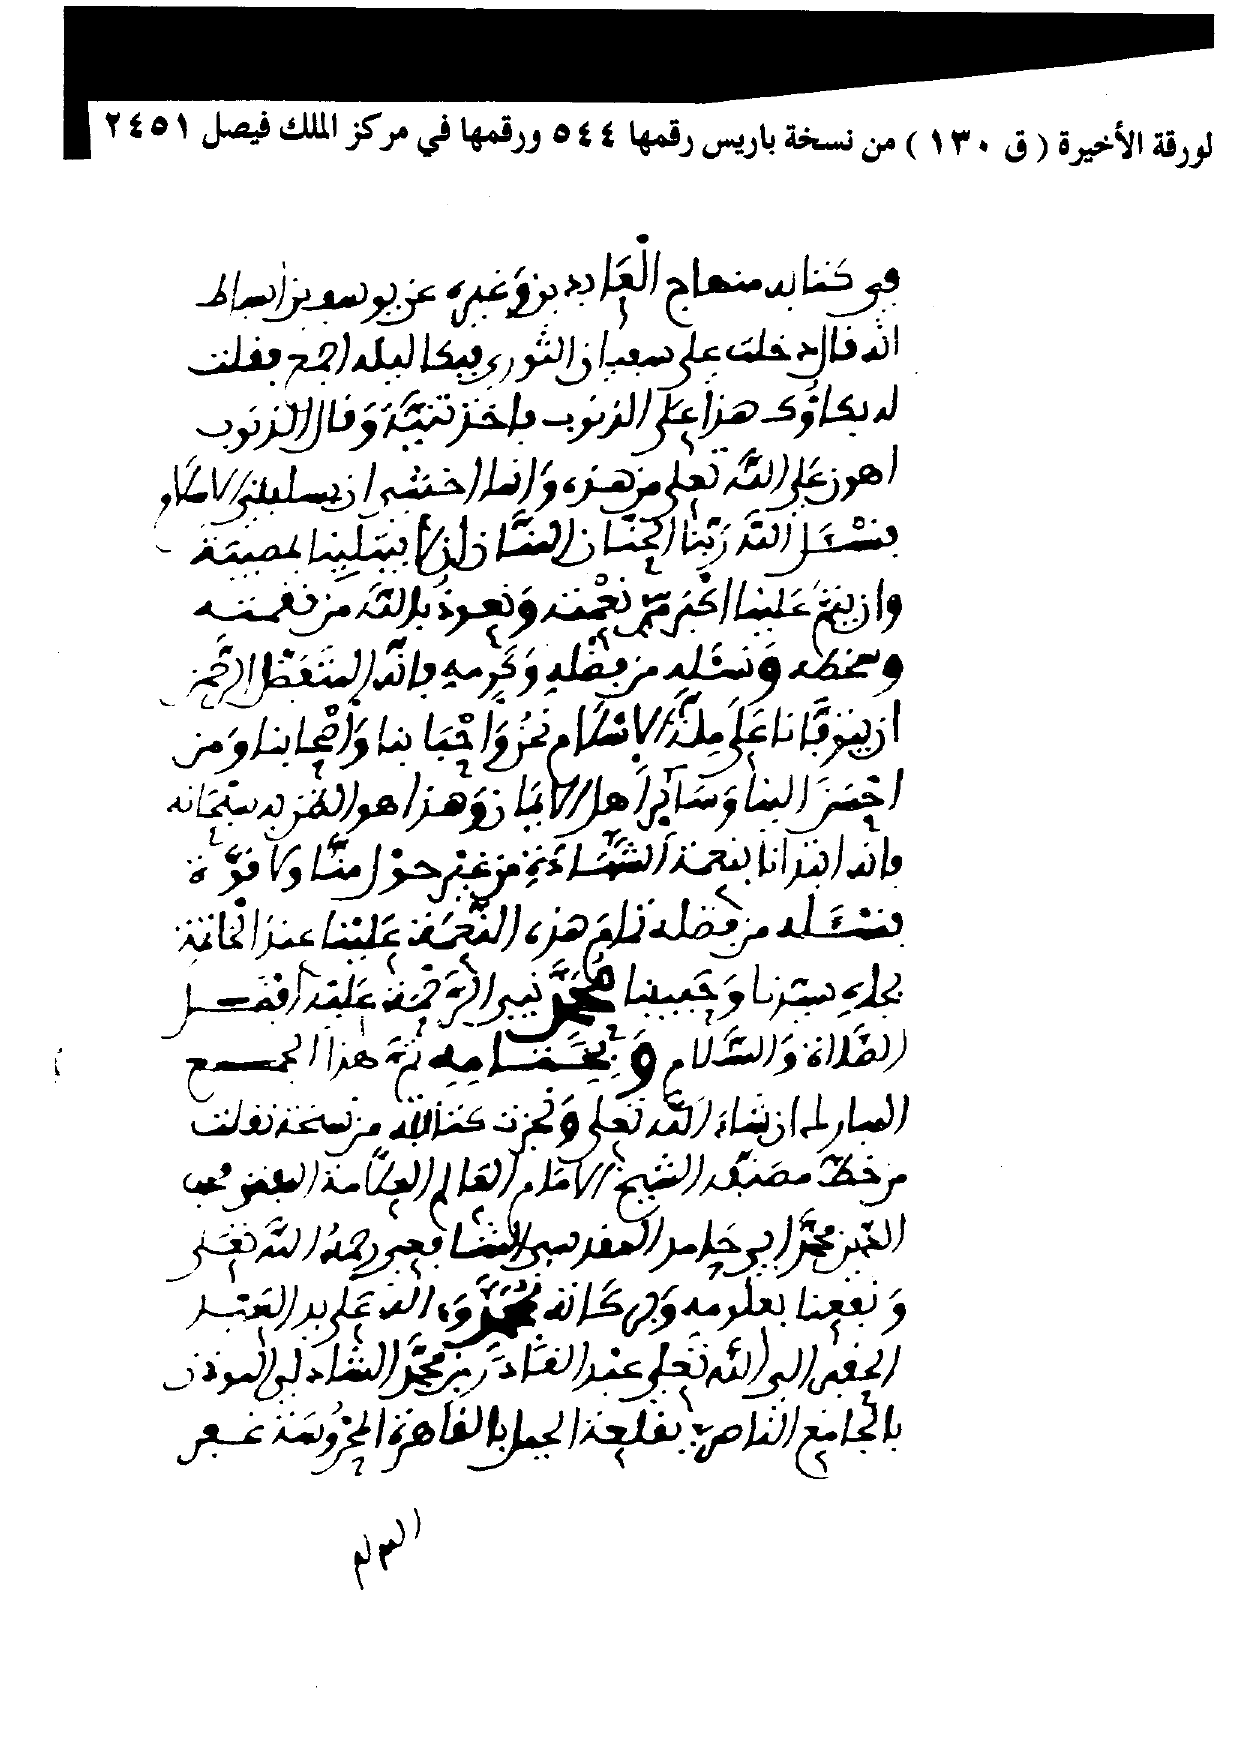 لورقة الأخيرة ( ق ١٣٠ ) من نسخة باريس رقمها ٥٤٤ ورقمها في مركز الملك فيصل ٢٤٥١
في كتابه منهاج الْعَابدين وَغيره عن يوسف بن اسباط
انه قال دخلت على سفيان الثوري فبكا ليله اجمع فقلت
له بكاؤك هذا على الذنوب فاخذ تبنة وَقال الذنوب
اهون عَلى اللَّه تعلى من هذه وَانما اخشى ان يسلبني الاسلام
فنسْـَٔل اللَّه رَبّنا الحنّان المنَّان ان لا يبتلينا بمصيبة
وان يتم عَلينا اكبر نعْمته وَنعوذ بالله من نقمته
وسخطه وَنسئله من فضله وَكَرمه فانَّه المتفضّل الرّحمن
ان يتوفّانا عَلى ملّة الاسْلام نحن وَاحْبابنا وَاصْحابنا وَمن
احْسَن الينا وَسَائر اهل الايمان وَهذا هو الظن به سبْحانه
فانه ابتدانا بنعمة الشَّهادة من غيْر حوْل منَّا ولا قوَّة
فنسْـَٔله من فضله تمام هذه النِّعمَة عَليْنا عند الخاتمة
بجاه سيّدنا وَحَبيبنا مُحَمَّد نبي الرّحْمة عَليْه أفضـل
الصَّلاة وَالسَّلام وَبخَتَامِه تمّ هذا الجمـع
المبارك ان شاء اللَّه تعلى وَنجزت كتابته من نسخة نقلت
من خطّ مصنّفه الشّيخ الامَام العَالم العلاّمة المفنن محب
الدّين محمَّد ابي حَامد المقدسي الشّافعي رحمهُ اللَّه تعَلى
وَنفعنا بعلومه وَبركاته بمُحَمَّد وَءاله على يد العَبْد
الفقير الى اللَّه تعَلى عبد القَادر بن محمَّد الشاذلى المؤذن
بالْجامع النَّاصري بقلعة الجبل بالقَاهرة المحْرُوسَة غـفر